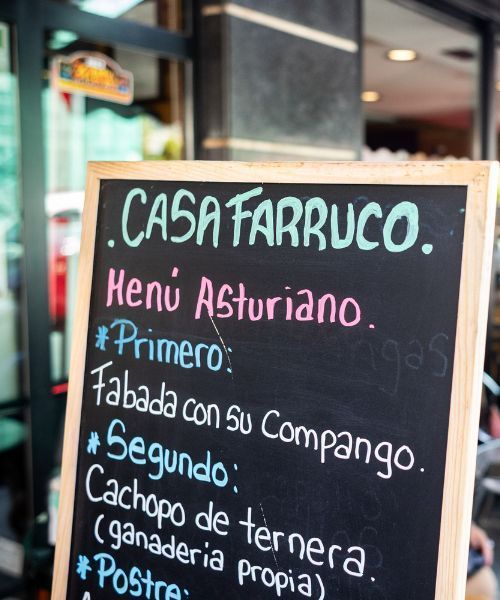 . CASA FARRUCO.
Menú Asturiano.
*Primero:
Fabada con su Compango.
*Segundo:
Cachopo de ternera.
(ganaderia propia)
*Postre: